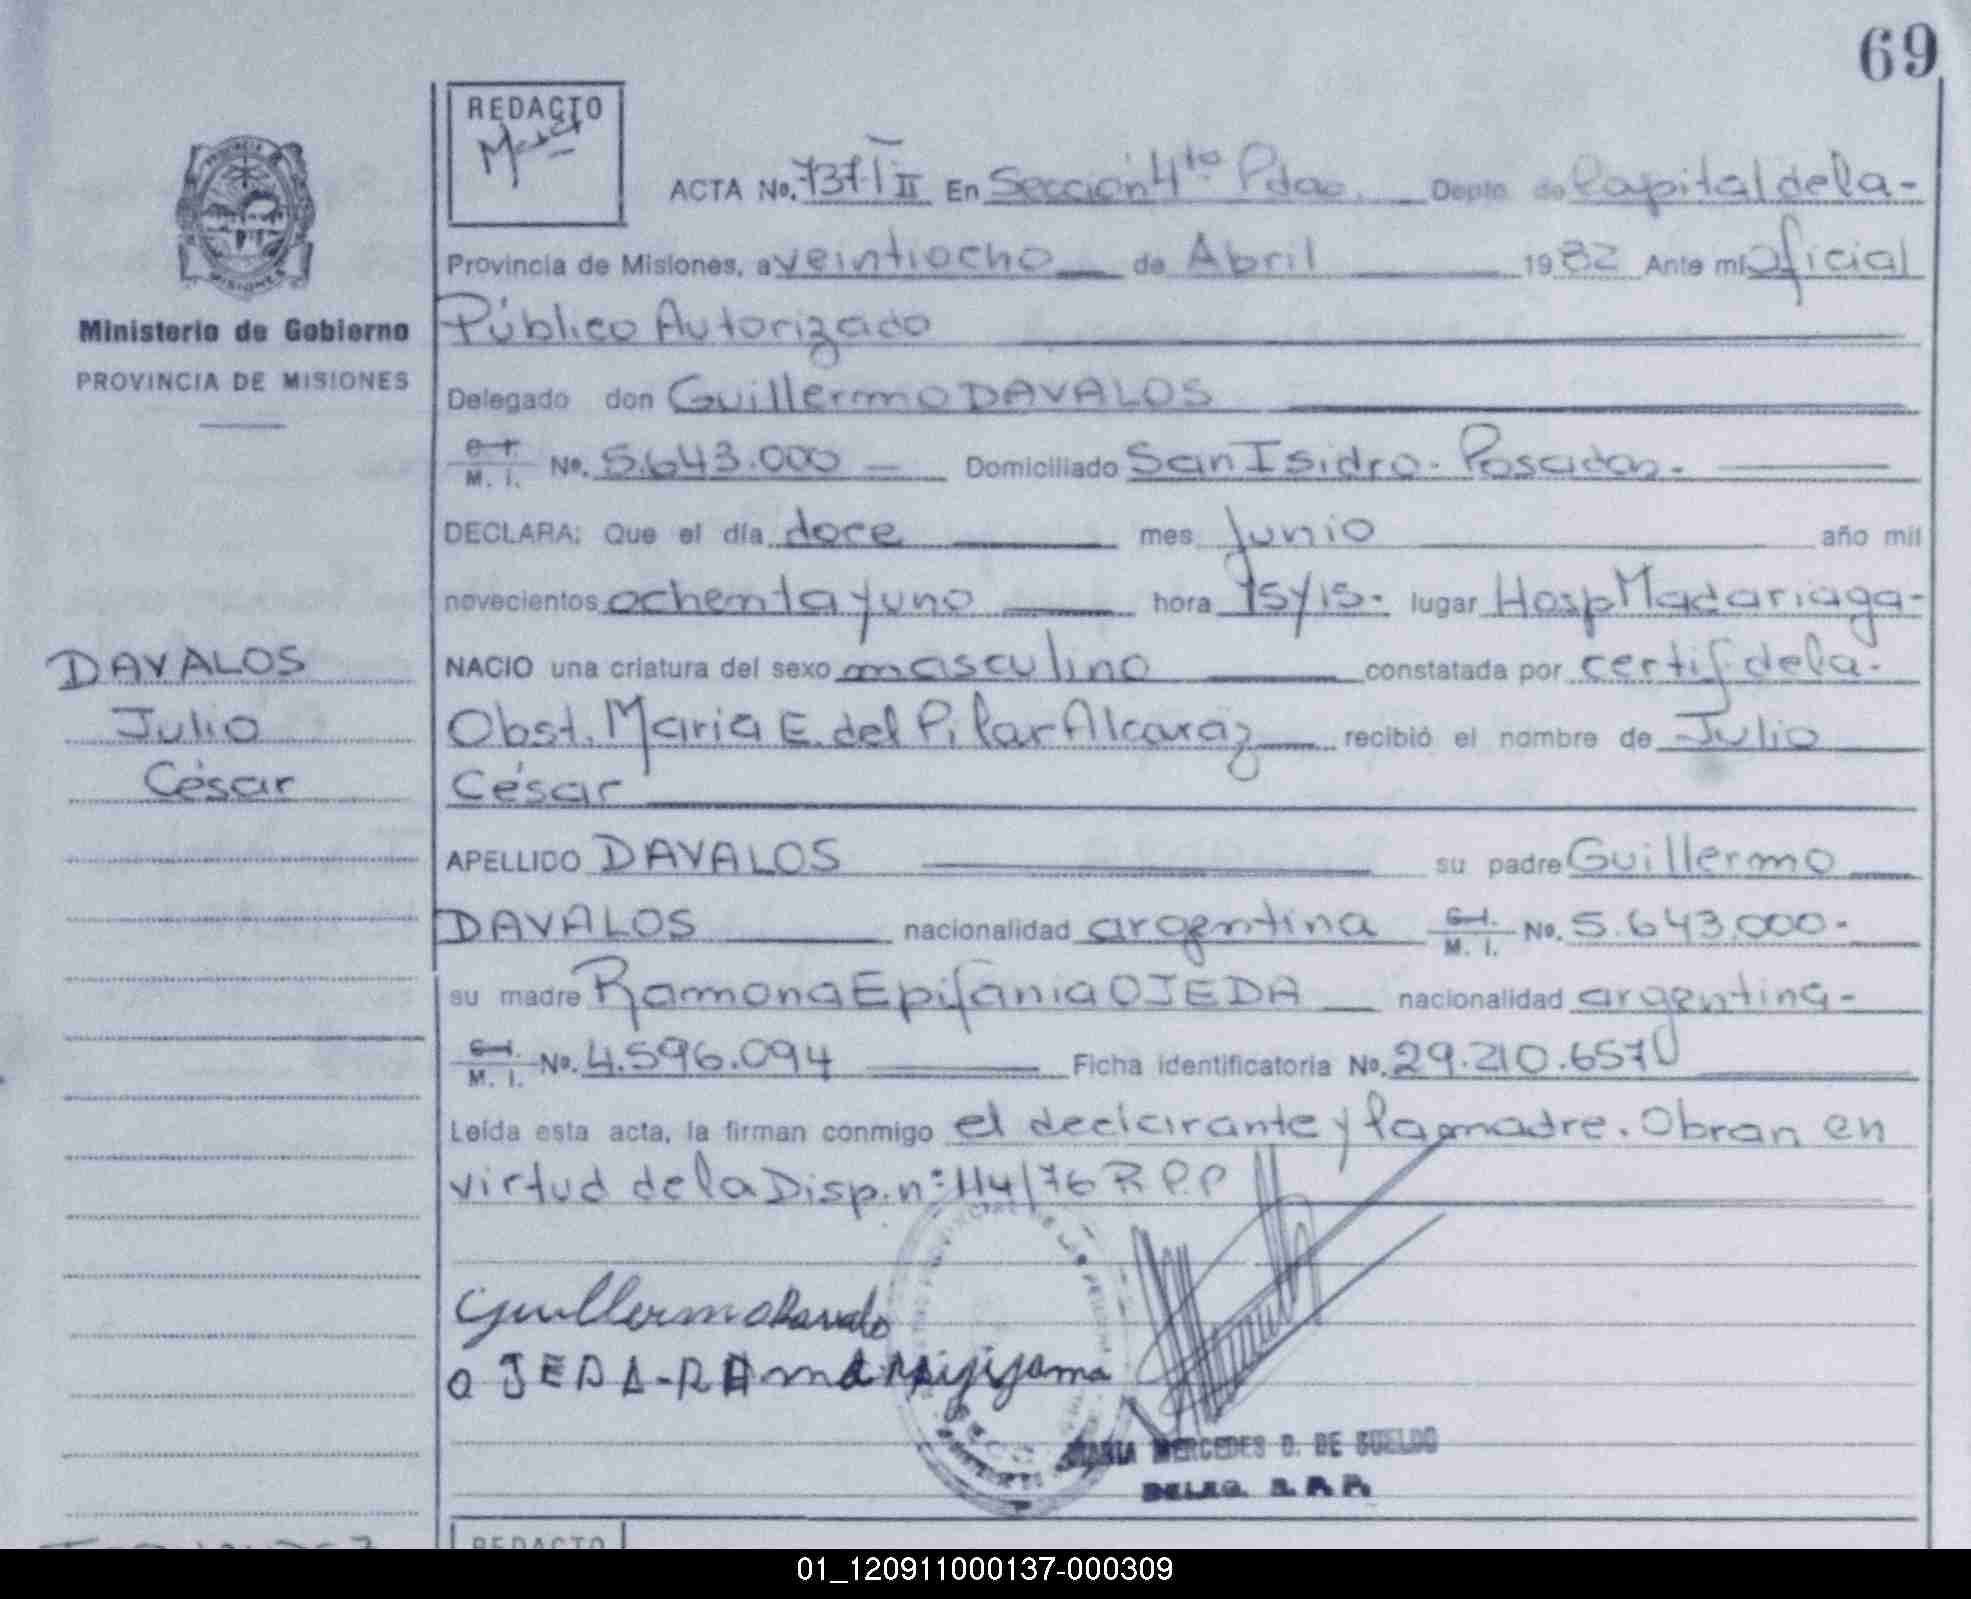 69
REDACTO
ACTA No. 737 I II En Sección 4ta Pdas. Depto de Capital de la-
Provincia de Misiones, a veintiocho de Abril 1982 Ante mí Oficial
Ministerio de Gobierno
PROVINCIA DE MISIONES
Público Autorizado
Delegado don Guillermo DAVALOS
C. I. M. I. No. 5.643.000 Domiciliado San Isidro. Posadas.
DECLARA: Que el día doce mes Junio año mil
novecientos ochenta y uno hora 15 y 15. lugar Hosp Madariaga-
DAVALOS
Julio
César
NACIO una criatura del sexo masculino constatada por certif. de la.
Obst. Maria E. del Pilar Alcaraz recibió el nombre de Julio
César
APELLIDO DAVALOS su padre Guillermo
DAVALOS nacionalidad argentina C. I. M. I. No. 5.643.000-
su madre Ramona Epifania OJEDA nacionalidad argentina-
C. I. M. I. No. 4.596.094 Ficha identificatoria No. 29.210.657
Leída esta acta, la firman conmigo el declarante y la madre. Obran en
virtud de la Disp. nº 114/76 R P.P
Guillermo Davalo
OJEDA-
MARIA MERCEDES D. DE SUELDO
DELEG. R. P. P.
REDACTO
01_120911000137-000309